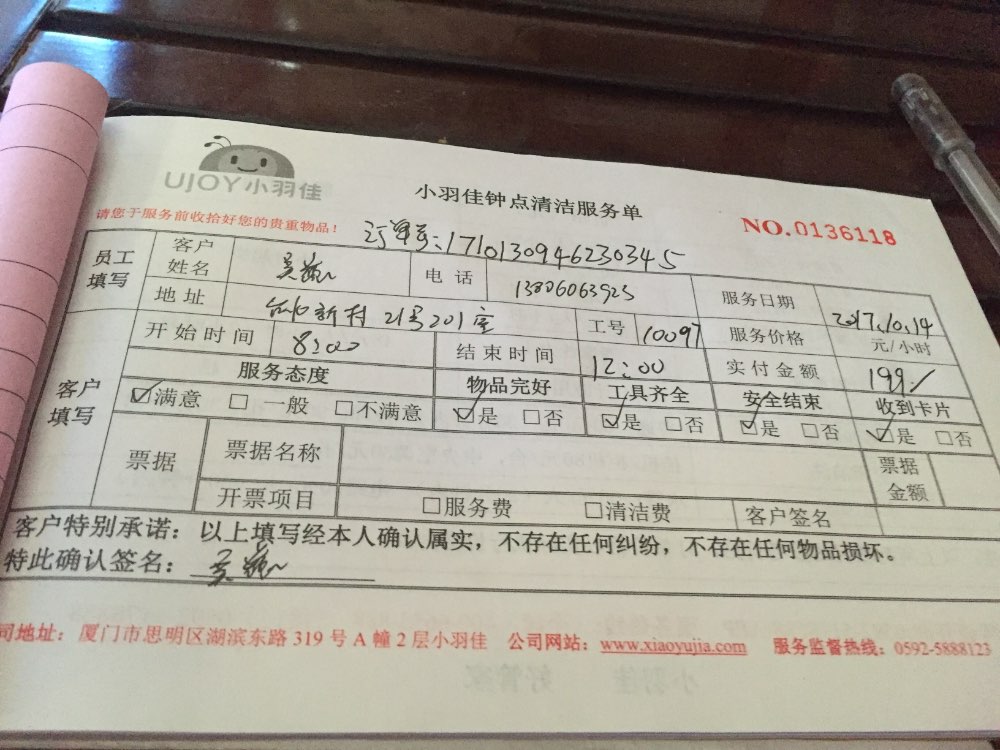 UJOY小羽佳
小羽佳钟点清洁服务单
请您于服务前收拾好您的贵重物品！
NO.0136118
订单号：1710130946230345
员工填写
客户姓名 吴
电话 13806063925
服务日期 2017.10.14
地址 新村 21号201室
工号 10097
服务价格 元/小时
客户填写
开始时间 8:00
结束时间 12:00
实付金额 199
服务态度 物品完好 工具齐全 安全结束 收到卡片
☑满意 □一般 □不满意 ☑是 □否 ☑是 □否 ☑是 □否 ☑是 □否
票据
票据名称
票据金额
开票项目 □服务费 □清洁费 客户签名
客户特别承诺：以上填写经本人确认属实，不存在任何纠纷，不存在任何物品损坏。
特此确认签名：吴
司地址：厦门市思明区湖滨东路 319 号 A 幢 2 层小羽佳 公司网站：www.xiaoyujia.com 服务监督热线：0592-5888123